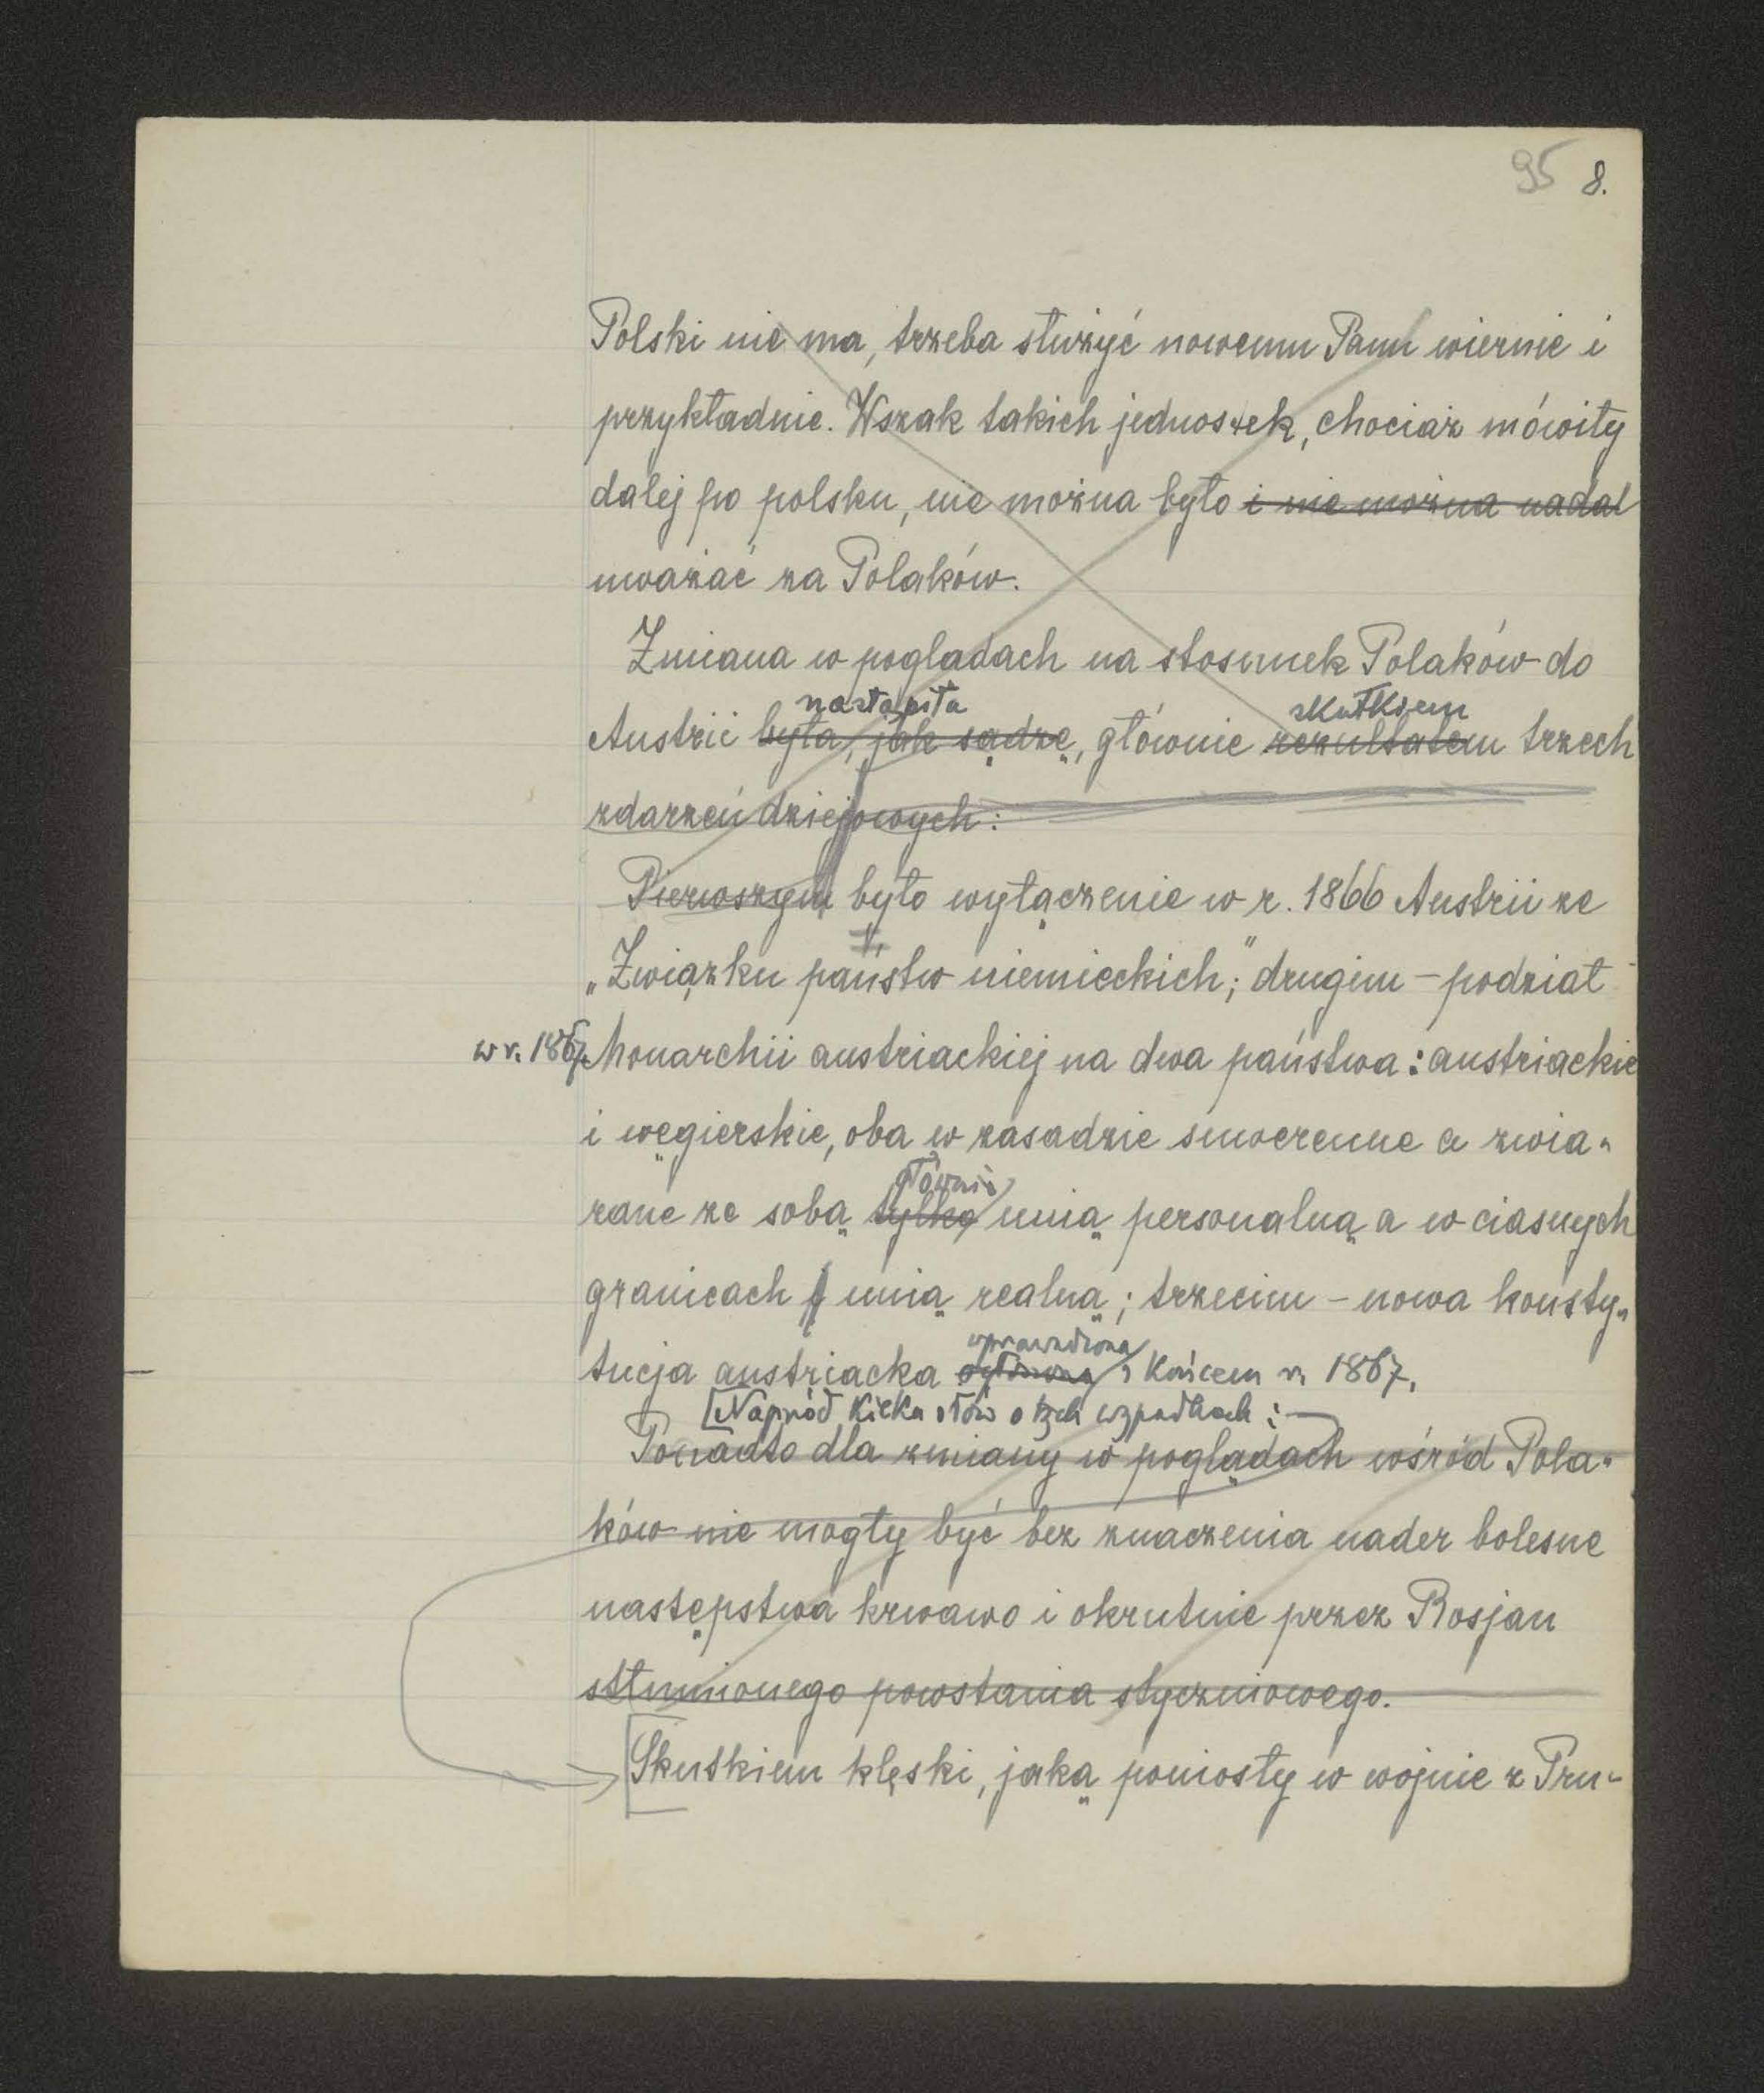 95 8.
Polski nie ma, trzeba służyć nowemu Panu wiernie i
przykładnie. Wszak takich jednostek, chociaż mówiły
dalej po polsku, nie można było i nie można nadal
uważać za Polaków.
Zmiana w poglądach na stosunek Polaków do
nastąpiła skutkiem
Austrii była, jak sądzę, głównie rezultatem trzech
zdarzeń dziejowych:
Pierwszym było wyłączenie w r. 1866 Austrii ze
„Związku państw niemieckich;" drugim – podział
w r. 1867 Monarchii austriackiej na dwa państwa: austriackie
i węgierskie, oba w zasadzie suwerenne a zwią-
głównie
zane ze sobą tylko unią personalną a w ciasnych
granicach unią realną; trzecim – nowa konsty-
wprowadzona
tucja austriacka ogłoszona z końcem r. 1867.
[Naprzód kilka słów o tych wypadkach:
Ponadto dla zmiany w poglądach wśród Pola-
ków nie mogły być bez znaczenia nader bolesne
następstwa krwawo i okrutnie przez Rosjan
stłumionego powstania styczniowego.
[Skutkiem klęski, jaką poniosły w wojnie z Pru-